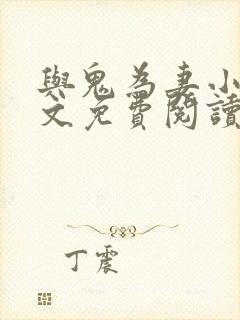 與鬼為妻小
文免費閱讀
丁震